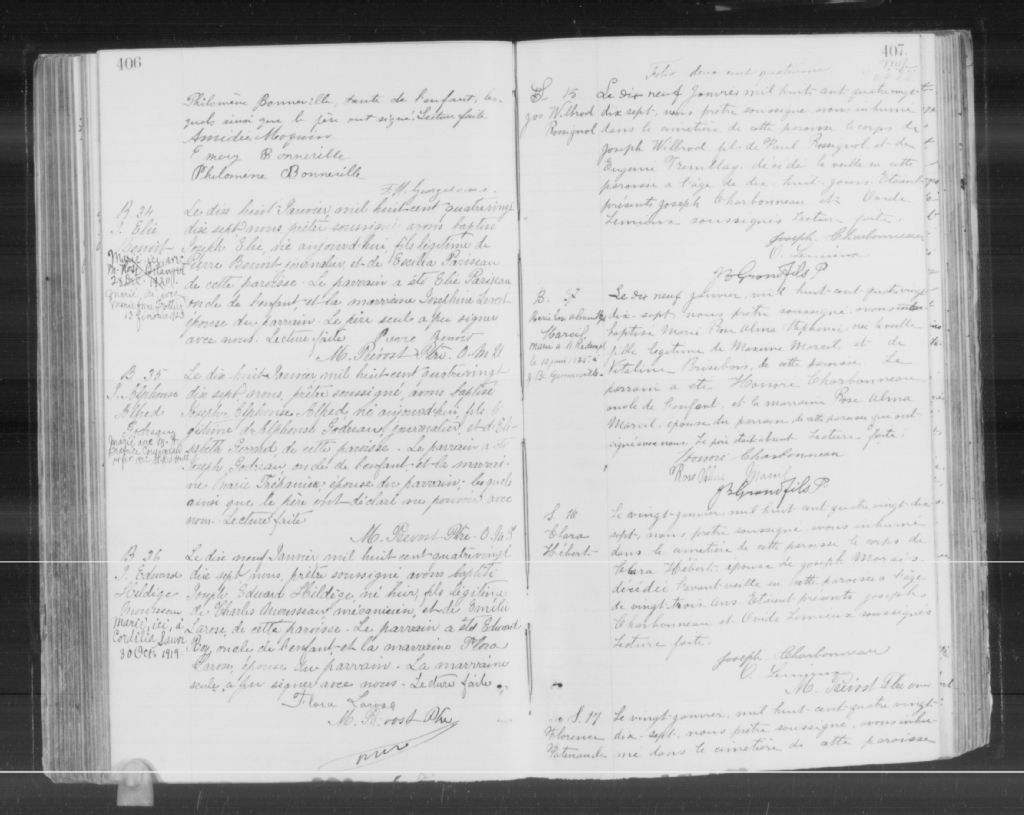 406
Philomène Bonneville, tante de l'enfant, les-
quels ainsi que le père ont signé. Lecture faite
Amédée
Emery Bonneville
Philomène Bonneville
B. 34
J. Elie
Benoit
Le dix huit Janvier mil huit-cent quatrevingt
dix sept nous prêtre soussigné avons baptisé
Joseph Elie né aujourd'hui fils légitime de
Pierre Benoit journalier, et de Exilia Pariseau
de cette paroisse. Le parrain a été Elie Pariseau
oncle de l'enfant et la marraine Joséphine
épouse du parrain. Le père seul a pu signer
avec nous. Lecture faite Pierre Benoit
M. Prévost Ptre. O.M.I
B. 35
J. Alphonse
Alfred
Le dix huit Janvier mil huit-cent quatrevingt
dix sept nous, prêtre soussigné, avons baptisé
Joseph Alphonse Alfred, né aujourd'hui, fils lé-
gitime d'Alphonse journalier, et d'Eli-
sabeth de cette paroisse. Le parrain a été
Joseph oncle de l'enfant et la marrai-
ne Marie Trépanier, épouse du parrain, lesquels
ainsi que le père ont déclaré ne pouvoir avec
nous. Lecture faite
M. Prévost Ptre. O.M.I
B. 36
J. Edouard
Hildège
Mousseau
Marié ici, à
Cordélia
30 Oct. 1919
Le dix neuf Janvier mil huit-cent-quatrevingt
dix sept nous, prêtre soussigné avons baptisé
Joseph Edouard Hildège, né hier, fils légitime
de Charles Mousseau, mécanicien, et de Emélie
Larose, de cette paroisse. Le parrain a été Edouard
Roy, oncle de l'enfant et la marraine Flora
Larose, épouse du parrain. La marraine
seule a pu signer avec nous. Lecture faite.
Flora Larose
M. Prévost Ptre
407
Folio deux cent quatrième
S. 15
Jos Wilbrod
Rossignol
Le dix neuf Janvier mil huit-cent quatre vingt
dix sept, nous prêtre soussigné avons inhumé
dans le cimetière de cette paroisse le corps de
Joseph Wilbrod fils de Paul Rossignol et de
Eugenie Tremblay, décédé la veille en cette
paroisse à l'âge de dix-huit jours. Etaient
présents Joseph Charbonneau et Ovide
Lemieux soussignés. Lecture faite.
Joseph Charbonneau
O. Lemieux
JB Grandfils P
B. 37
Marcil
Le dix neuf janvier, mil huit-cent-quatre vingt
dix-sept, nous prêtre soussigné avons
baptisé Marie Rose Alma Stephanie, née la veille
fille légitime de Maxime Marcil et de
Vitaline Brisebois, de cette paroisse. Le
parrain a été Honoré Charbonneau
oncle de l'enfant, et la marraine Rose Alma
Marcil, épouse du parrain, de cette paroisse qui ont
signé avec nous. Le père était absent. Lecture faite.
Honoré Charbonneau
Rose Marcil
JB Grandfils P
S. 16
Clara
Hébert
Le vingt janvier mil huit cent quatre vingt dix
sept, nous prêtre soussigné avons inhumé
dans le cimetière de cette paroisse le corps de
Clara Hébert, épouse de Joseph Marois
décédée l'avant-veille en cette paroisse à l'âge
de vingt-trois ans. Etaient présents Joseph
Charbonneau et Ovide Lemieux soussignés
Lecture faite.
Joseph Charbonneau
O. Lemieux
M. Prévost Ptre
S. 17
Florence
Patenaude
Le vingt janvier, mil huit-cent-quatre vingt-
dix-sept, nous prêtre soussigné, avons inhu-
mé dans le cimetière de cette paroisse